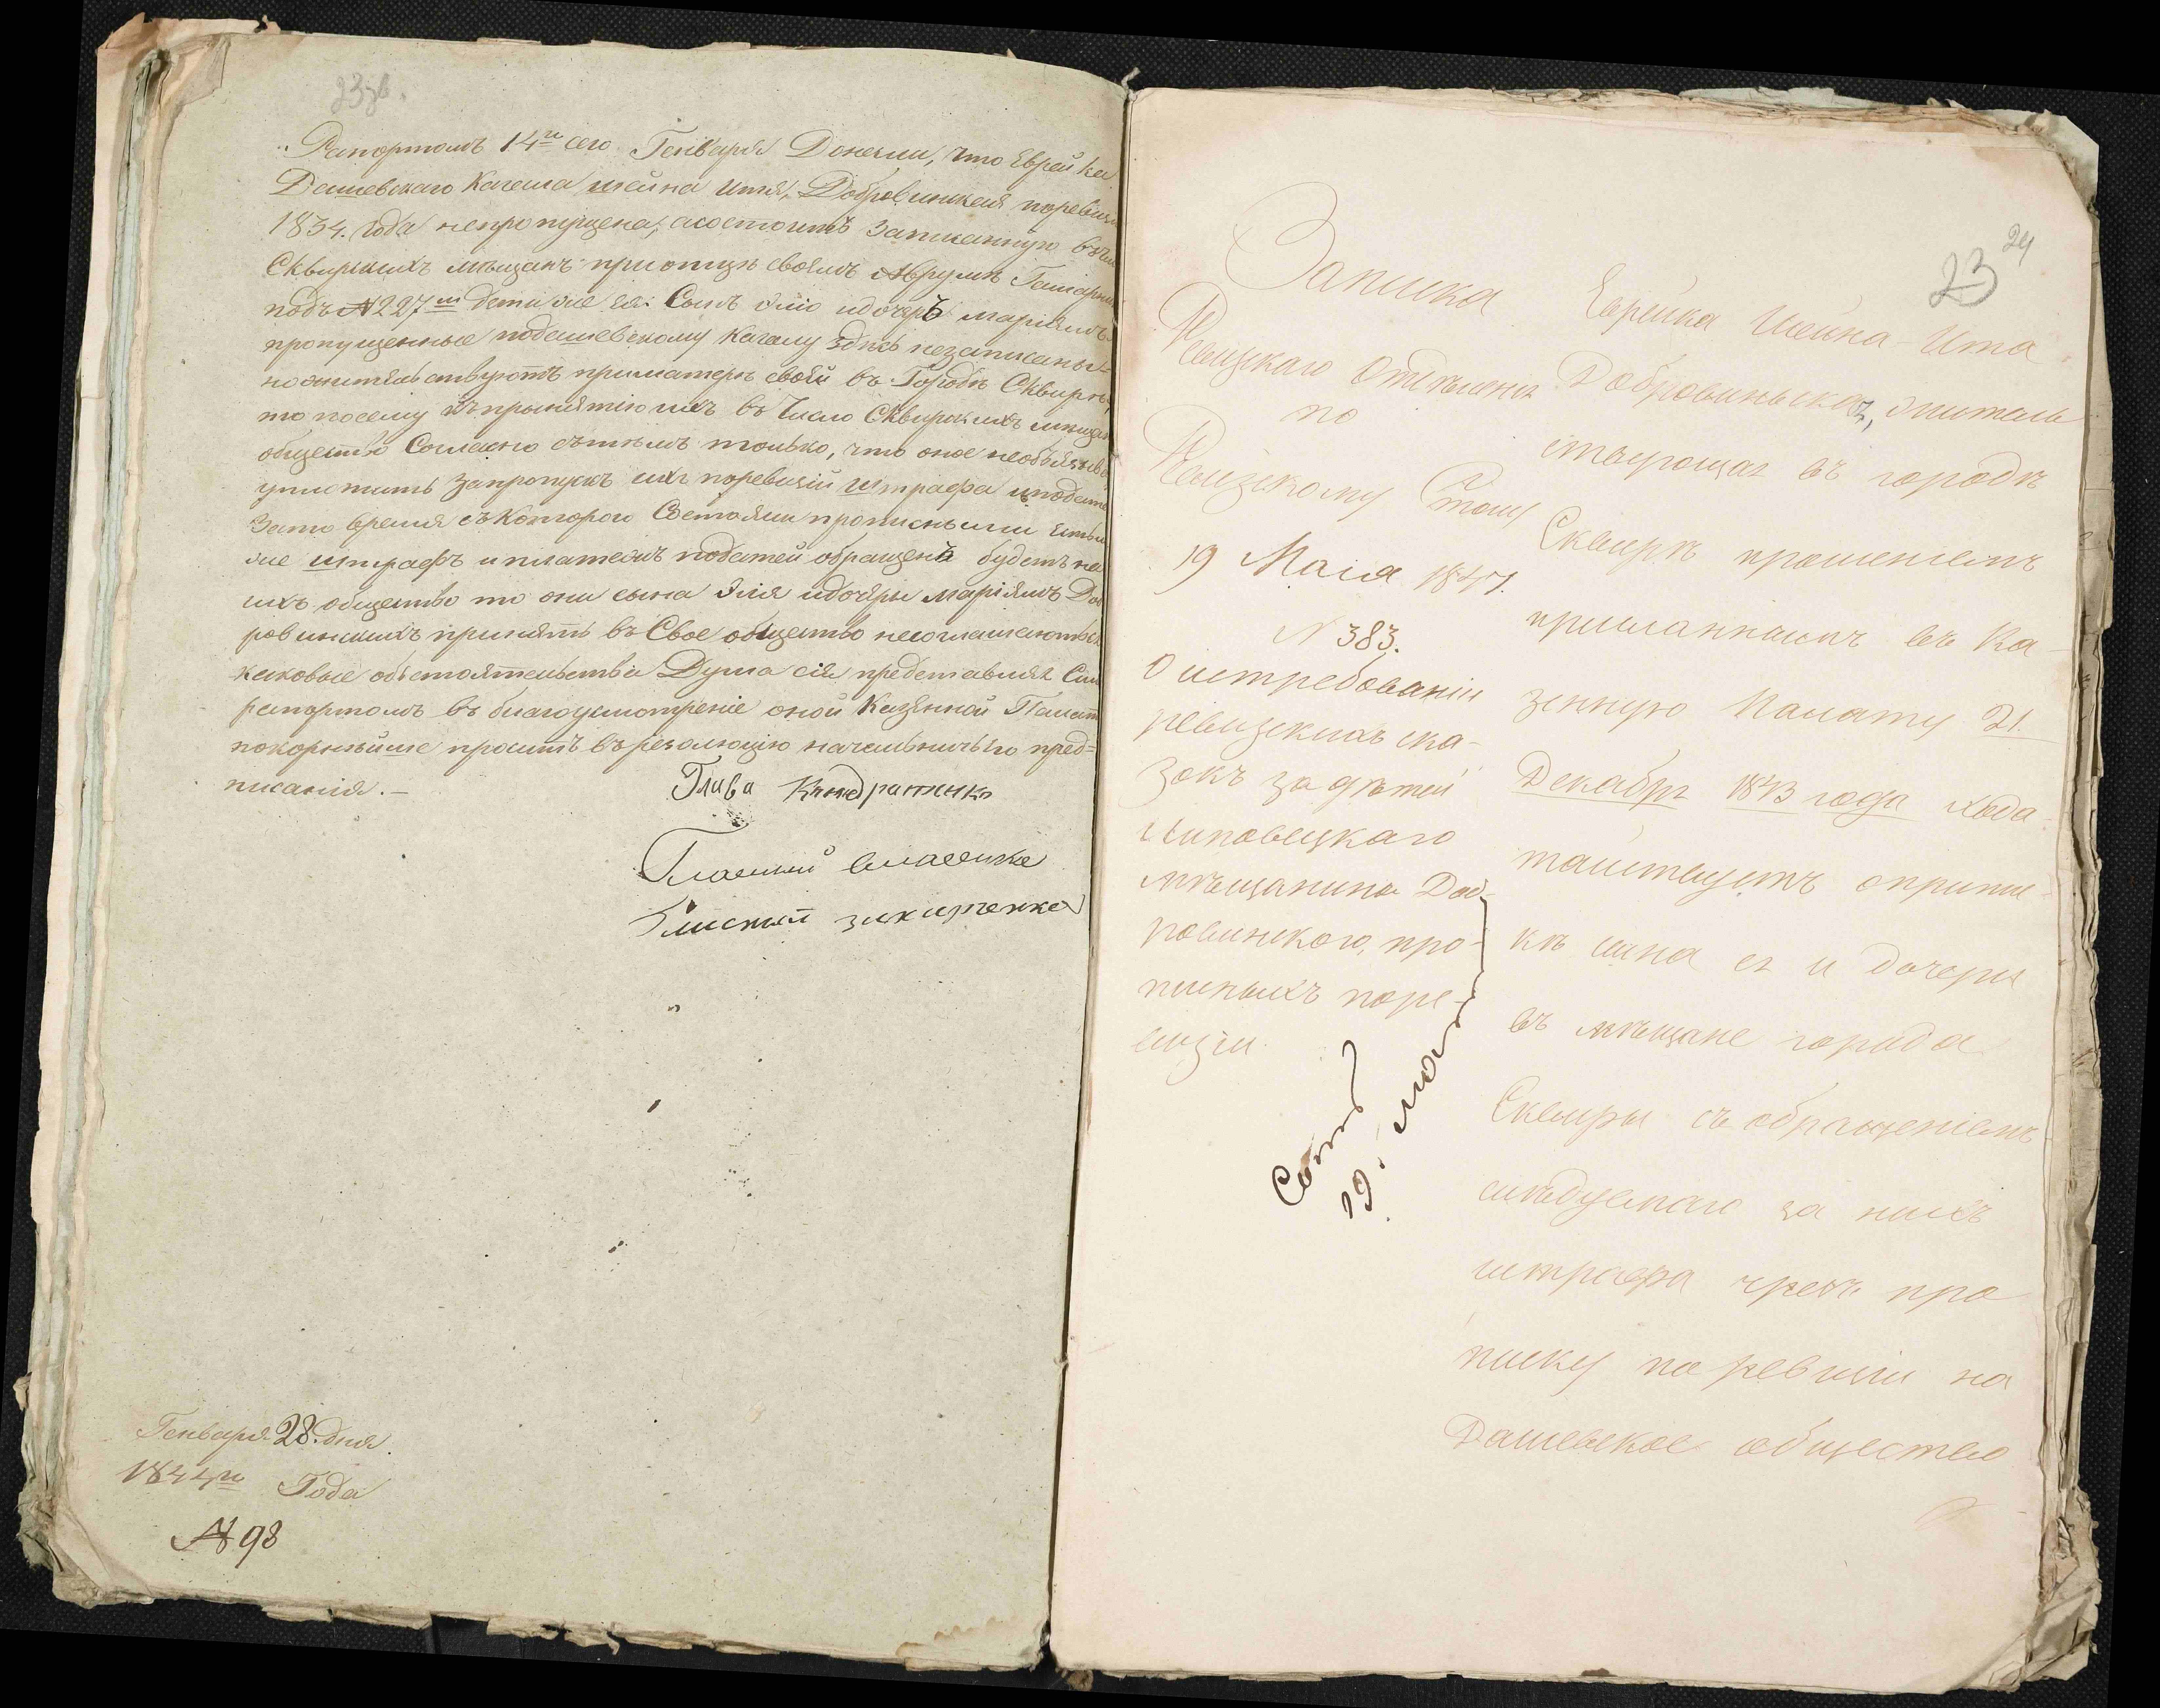 23 зв.
Рапортомъ 14го сего Генваря Донесли, что Еврейка
Дашевскаго Кагала Шейна Итя, Добровинская поревиз
1834. Года непропущена, а состоитъ Записанную въ чи
Сквирскихъ мѣщанъ при отцѣ своемъ Аврумѣ
подъ № 227м дети же ея: Сынъ Элiо идочерь Марiямъ
пропущенные подашевскому Кагалу Здѣсь незаписаны
но жительствуютъ приматерѣ своей въ Городѣ Сквирѣ,
то посему къ принятiю ихъ въ Число Сквирскихъ мѣщан
общество Согласно сътѣмъ только, что оное необязыв
уплотить Запропускъ ихъ поревизiи Штрафа иподати
Зато время съ Которого Состояли прописными Естьли
же штрафъ иплатежъ податей обращенъ будетъ на
ихъ общество то они сына Элiя идочеры Марiямъ Доб
ровинскихъ принять въ Свое общество несоглашаются
каковые обстоятельства Дума сiя представляя Сим
рапортомъ въ благоусмотренiе оной Казенной Палат
покорнѣйше проситъ въ резолюцiю начальничьго пред=
писанiя.—
Глава Кондратенко
Гласный
Гласный
Генваря 28. дня.
1844го Года
№ 98
23 24
Записка
Ревизскаго Отделенiя
по
Ревизскому Столу
19 Маiя 1847.
N 383.
О истребованiи
ревизскихъ ска-
зокъ за детей
Липовецкаго
мѣщанина Доб-
ровинского, про-
писныхъ поре-
визiи.
19. Мая
Еврейка Шейна-Ита
Добровинская, житель
ствующая въ городѣ
Сквирѣ прошенiемъ
присланнымъ въ Ка-
зенную Палату 21.
Декабря 1843 года хода-
тайствуетъ о припис-
кѣ сына ея и дочери
въ мѣщане города
Сквиры съ обращенiемъ
слѣдуемаго за нихъ
штрафа чрезъ про
писку по ревизiи на
Дашевское общество